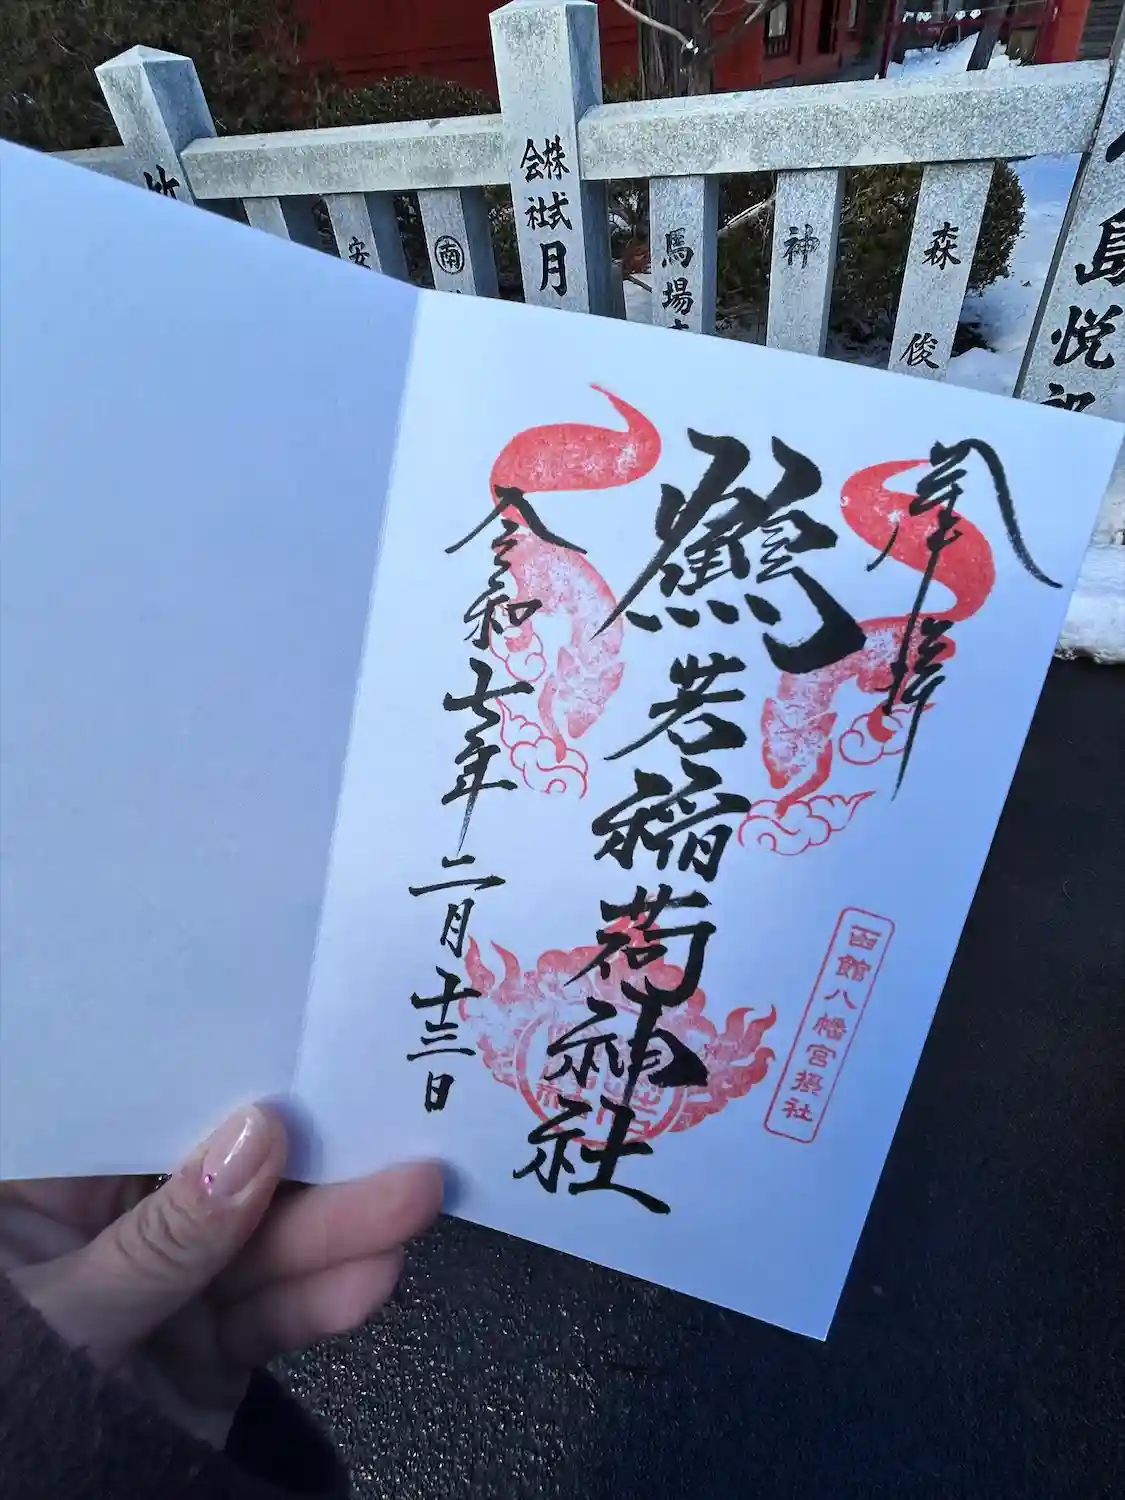 株式
会社
月
安
南
馬場
神
森 俊
島悦
奉拝
鶴若稲荷神社
令和七年二月十三日
函館八幡宮摂社